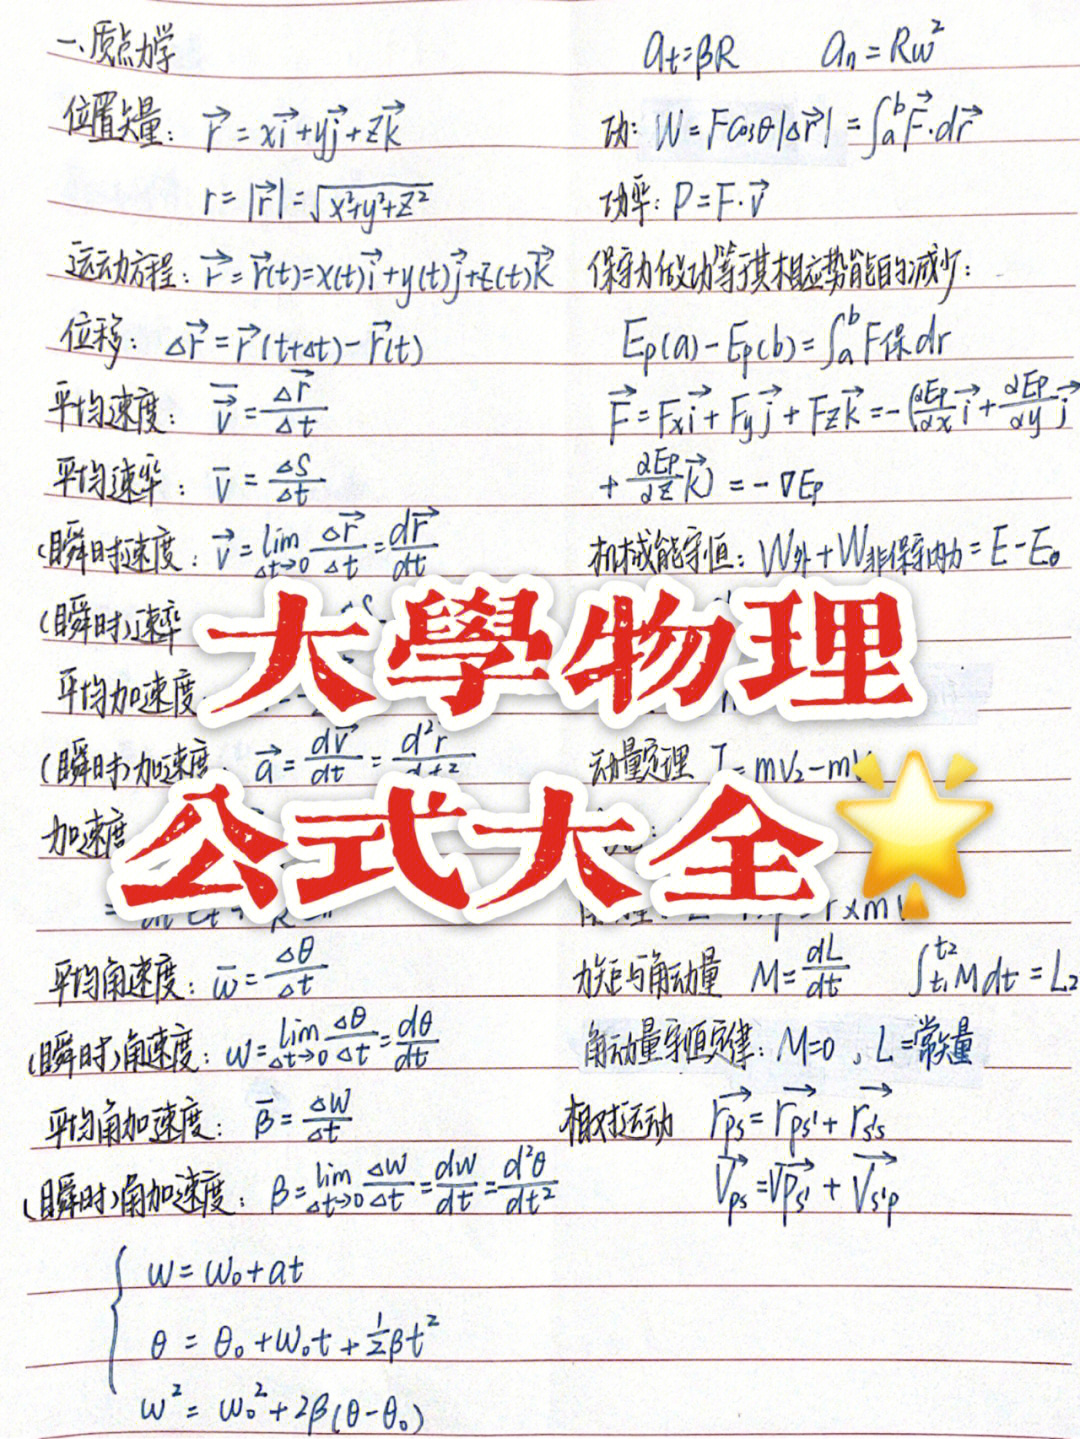 一、质点力学
位置矢量: r⃗ = xi⃗+yj⃗+zk⃗
r = |r⃗| = √x²+y²+z²
运动方程: r⃗ = r⃗(t)=x(t)i⃗+y(t)j⃗+z(t)k⃗
位移: Δr⃗ = r⃗(t+Δt)-r⃗(t)
平均速度: v̄⃗ = Δr⃗/Δt
平均速率: v̄ = ΔS/Δt
(瞬时)速度: v⃗ = lim Δt→0 Δr⃗/Δt = dr⃗/dt
(瞬时)速率
平均加速度
(瞬时)加速度: a⃗ = dv⃗/dt = d²r⃗/dt²
加速度
平均角速度: w̄ = Δθ/Δt
(瞬时)角速度: w = lim Δt→0 Δθ/Δt = dθ/dt
平均角加速度: β̄ = Δw/Δt
(瞬时)角加速度: β = lim Δt→0 Δw/Δt = dw/dt = d²θ/dt²
w = w₀+at
θ = θ₀+w₀t+½βt²
w² = w₀²+2β(θ-θ₀)
at=βR an=Rw²
功: W = Fcosθ|Δr⃗| = ∫ₐᵇF⃗·dr⃗
功率: P=F·v⃗
保守力做功等于其相应势能的减少:
Ep(a)-Ep(b)=∫ₐᵇF保dr
F⃗ = Fxi⃗+Fyj⃗+Fzk⃗ = -(∂Ep/∂x i⃗+∂Ep/∂y j⃗
+∂Ep/∂z k⃗) = -∇Ep
机械能守恒: W外+W非保守内力=E-E₀
动量定理 I=mv₂-m
r×m
力矩与角动量 M=dL/dt ∫t₁t₂Mdt=L₂
角动量守恒定律: M=0, L=常矢量
相对运动 r⃗ps=r⃗ps'+r⃗s's
V⃗ps=V⃗ps'+V⃗s'p
大學物理
公式大全